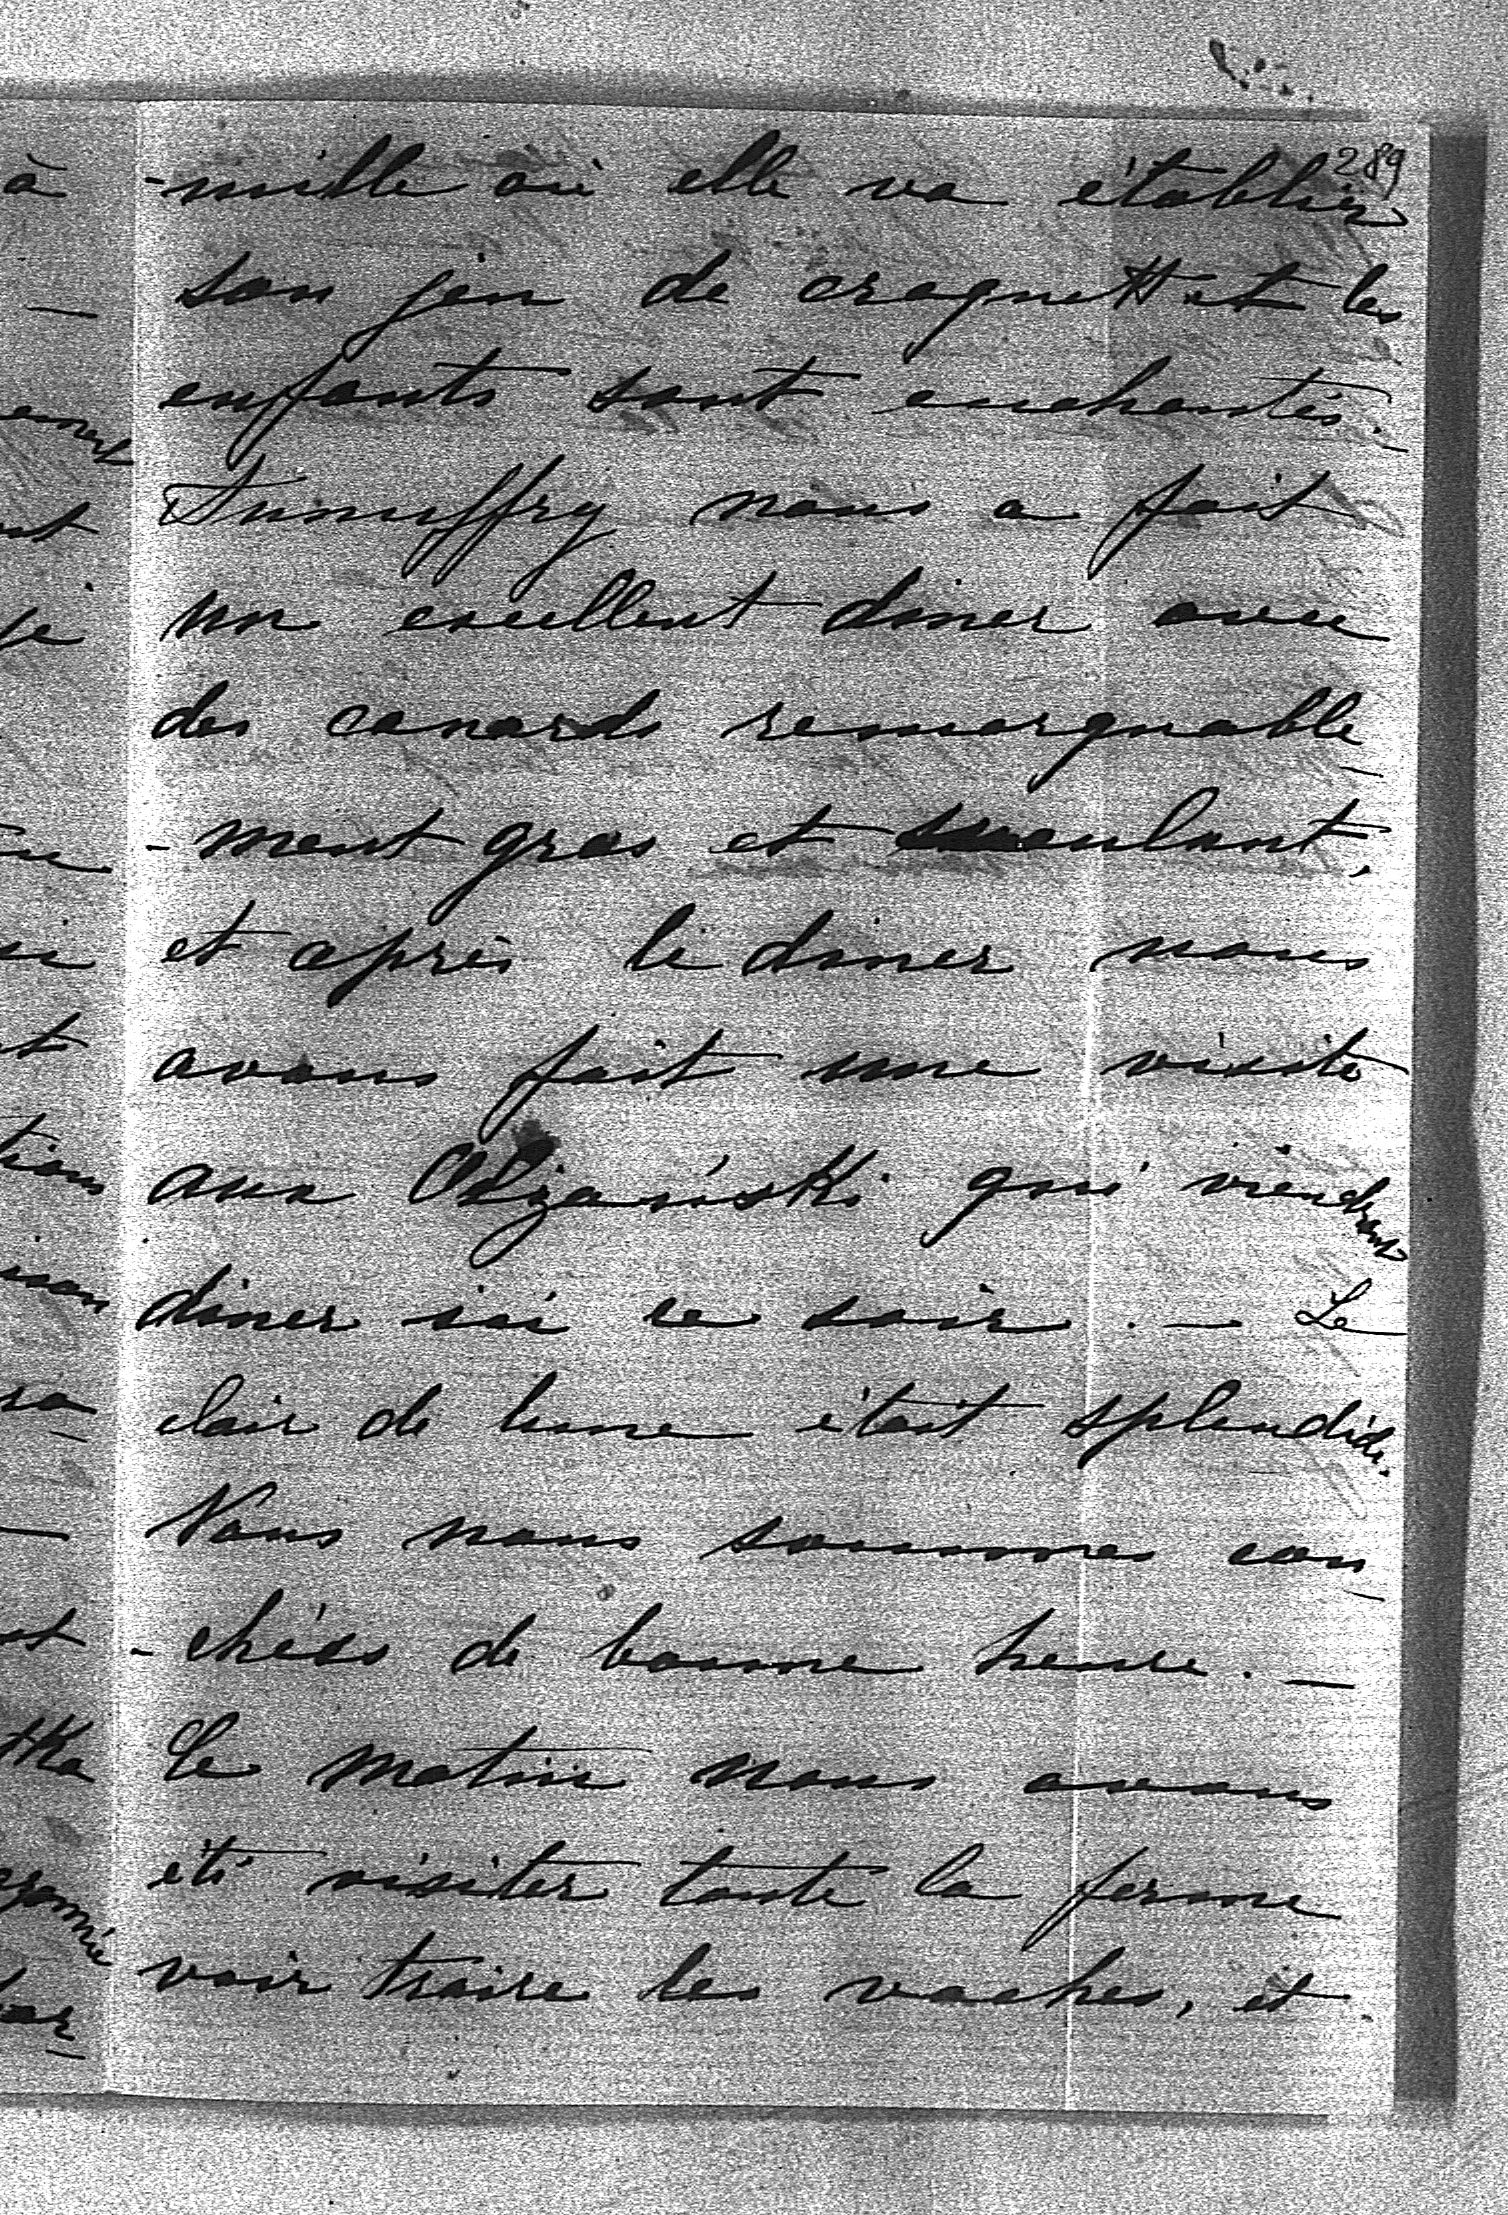 289
-mille où elle va établir
son jeu de croquett et les
enfants sont enchantés. —
nous a fait
un excellent diner avec
des canards remarquable
-ment gras et succulent,
et après le diner nous
avons fait une visite
aux qui viendront
diner ici ce soir. — Le
clair de lune était splendide.
Nous nous sommes cou-
-chées de bonne heure. —
Le matin nous avons
été visiter toute la ferme
voir traire les vaches, et